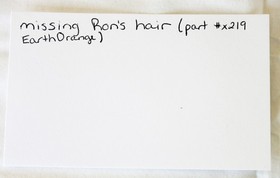 missing Ron's hair (part #x219
EarthOrange)